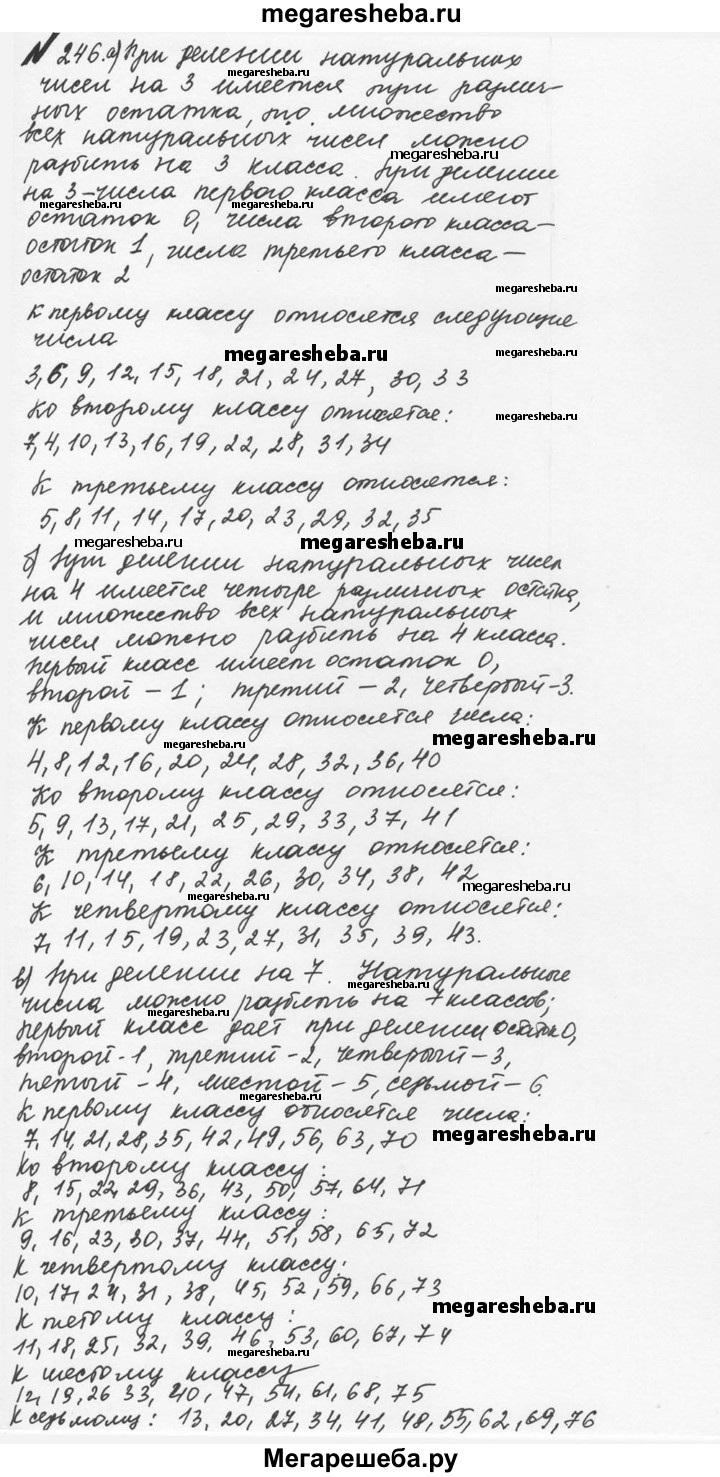 megaresheba.ru
№ 246. а) При делении натуральных
megaresheba.ru
чисел на 3 имеется три различ-
ных остатка, т.о. множество
megaresheba.ru
всех натуральных чисел можно
megaresheba.ru
разбить на 3 класса. При делении
на 3-числа первого класса имеют
megaresheba.ru
megaresheba.ru
остаток 0, числа второго класса-
остаток 1, числа третьего класса-
остаток 2
megaresheba.ru
К первому классу относятся следующие
числа
megaresheba.ru
3,6,9,12,15,18,21,24,27,30,33
megaresheba.ru
Ко второму классу относятся:
7,4,10,13,16,19,22,28,31,34
К третьему классу относятся:
megaresheba.ru
5,8,11,14,17,20,23,29,32,35
megaresheba.ru
megaresheba.ru
б) При делении натуральных чисел
на 4 имеется четыре различных остатка,
и множество всех натуральных
megaresheba.ru
чисел можно разбить на 4 класса.
Первый класс имеет остаток 0,
megaresheba.ru
второй - 1; третий - 2, четвертый-3.
К первому классу относятся числа:
megaresheba.ru
megaresheba.ru
4,8,12,16,20,24,28,32,36,40
Ко второму классу относятся:
5,9,13,17,21,25,29,33,37,41
К третьему классу относятся:
6,10,14,18,22,26,30,34,38,42
megaresheba.ru
К четвертому классу относятся:
7,11,15,19,23,27,31,35,39,43.
в) При делении на 7. Натуральные
числа можно разбить на 7 классов;
megaresheba.ru
первый класс дает при делении остаток 0,
второй-1, третий-2, четверый-3,
megaresheba.ru
пятый-4, шестой-5, седьмой-6.
megaresheba.ru
К первому классу относятся числа:
7,14,21,28,35,42,49,56,63,70
megaresheba.ru
Ко второму классу:
8,15,22,29,36,43,50,57,64,71
megaresheba.ru
К третьему классу:
9,16,23,30,37,44,51,58,65,72
К четвертому классу:
10,17,24,31,38,45,52,59,66,73
megaresheba.ru
К пятому классу:
11,18,25,32,39,46,53,60,67,74
megaresheba.ru
К шестому классу
12,19,26 33,40,47,54,61,68,75
megaresheba.ru
К седьмому: 13,20,27,34,41,48,55,62,69,76
Мегарешеба.ру